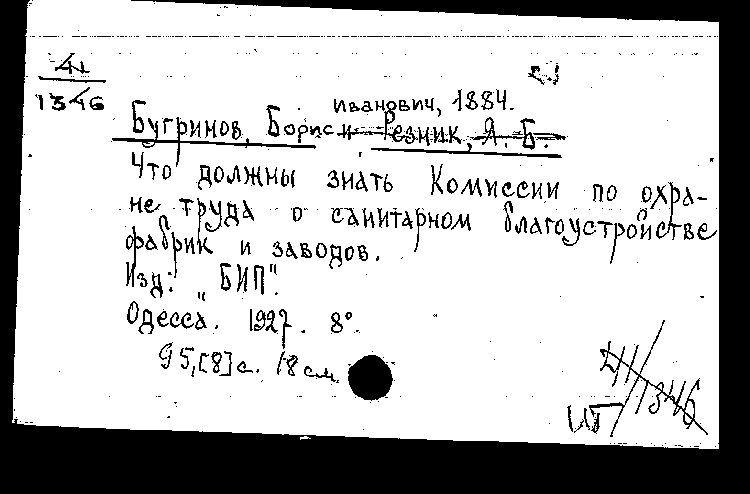 41
1346
Иванович, 1884.
Бугринов, Борис и Резник, Я. Б.
Что должны знать Комиссии по охра-
не труда о санитарном благоустройстве
фабрик и заводов.
Изд: „БИП".
Одесса. 1927. 8°.
95,[8] с. 18 см
41/1346